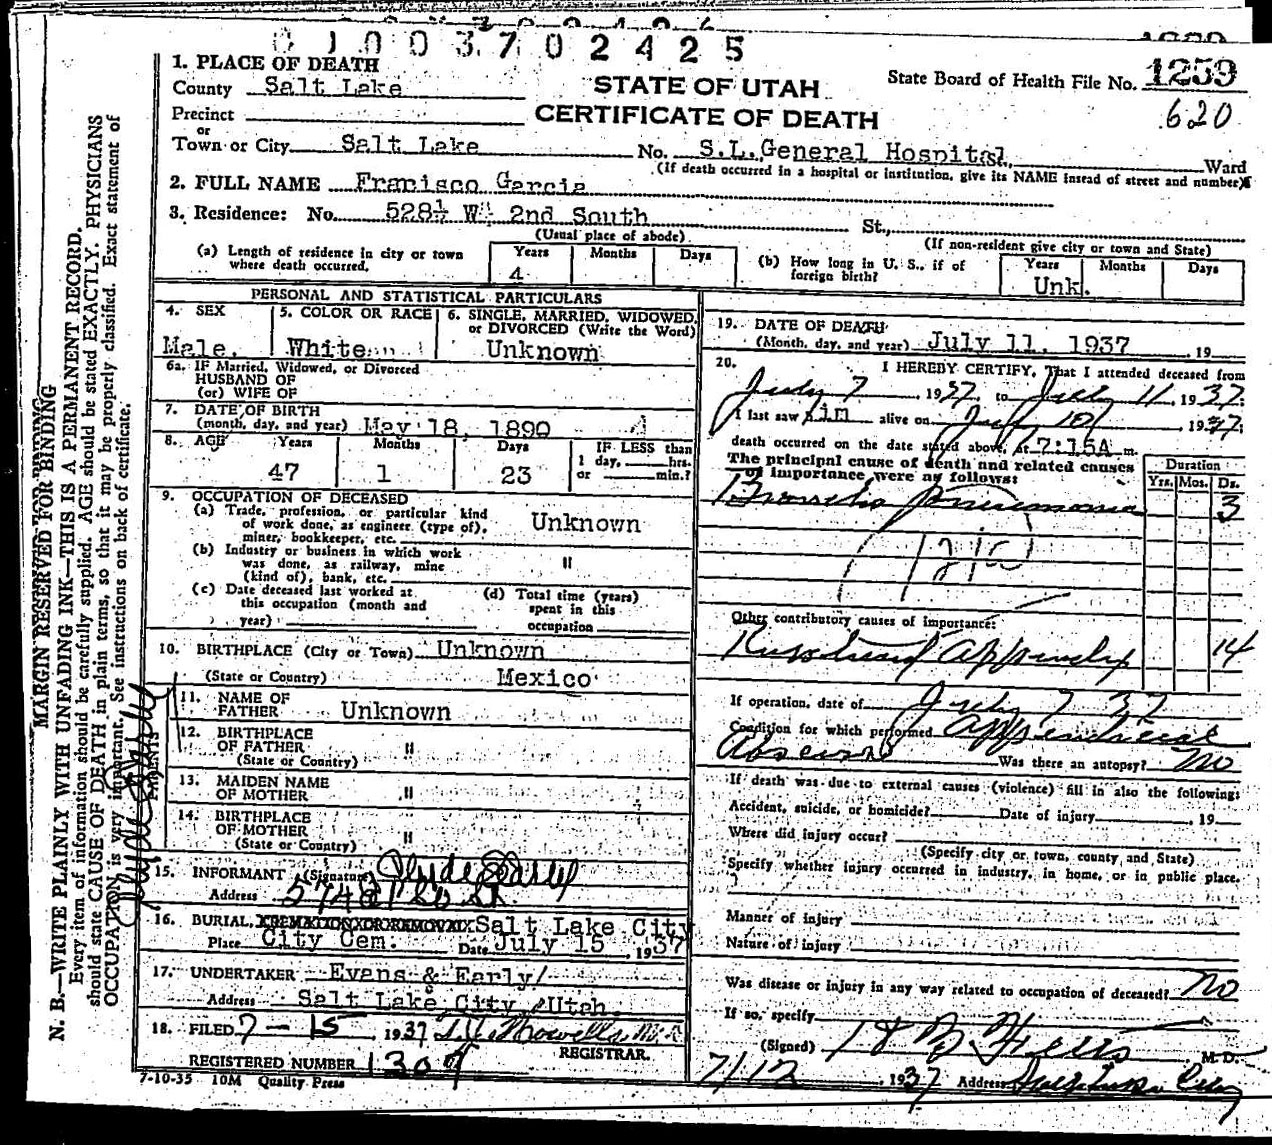 0 1 0 0 3 7 0 2 4 2 5
1. PLACE OF DEATH
County Salt Lake
STATE OF UTAH
CERTIFICATE OF DEATH
State Board of Health File No. 1259
620
Precinct
or
Town or City Salt Lake No. S.L. General Hospital Ward
(If death occurred in a hospital or institution, give its NAME insead of street and number)
2. FULL NAME Francisco Garcia
3. Residence: No. 528½ W. 2nd South St.,
(Usual place of abode) (If non-resident give city or town and State)
(a) Length of residence in city or town where death occurred. Years 4 Months Days
(b) How long in U. S., if of foreign birth? Years Unk. Months Days
PERSONAL AND STATISTICAL PARTICULARS
4. SEX Male.
5. COLOR OR RACE White
6. SINGLE, MARRIED, WIDOWED, or DIVORCED (Write the Word) Unknown
6a. IF Married, Widowed, or Divorced
HUSBAND OF
(or) WIFE OF
7. DATE OF BIRTH
(month, day, and year) May 18, 1890
8. AGE Years 47 Months 1 Days 23
IF LESS than
1 day, hrs.
or min.?
9. OCCUPATION OF DECEASED
(a) Trade, profession, or particular kind
of work done, as engineer (type of),
miner, bookkeeper, etc. Unknown
(b) Industry or business in which work
was done, as railway, mine
(kind of), bank, etc. "
(c) Date deceased last worked at
this occupation (month and
year)
(d) Total time (years)
spent in this
occupation
10. BIRTHPLACE (City or Town) Unknown
(State or Country) Mexico
PARENTS
11. NAME OF
FATHER Unknown
12. BIRTHPLACE
OF FATHER "
(State or Country)
13. MAIDEN NAME
OF MOTHER "
14. BIRTHPLACE
OF MOTHER "
(State or Country)
15. INFORMANT (Signature)
Address
16. BURIAL, CREMATION OR REMOVAL Salt Lake City
Place City Cem. Date July 15, 1937
17. UNDERTAKER Evans & Early
Address Salt Lake City, Utah.
18. FILED 7-15 1937
REGISTRAR.
REGISTERED NUMBER 1304
7-10-35 10M Quality Press
19. DATE OF DEATH
(Month, day, and year) July 11, 1937, 19
20. I HEREBY CERTIFY, That I attended deceased from
July 7, 1937, to July 11, 1937
I last saw him alive on July 10, 1937;
death occurred on the date stated above, at 7:15A m.
The principal cause of death and related causes
of importance were as follows:
Duration
Yrs. Mos. Ds.
Broncho pneumonia 3
Other contributory causes of importance:
Ruptured Appendix 14
If operation, date of July 7 37
Condition for which performed Appendiceal
Abscess Was there an autopsy? No
If death was due to external causes (violence) fill in also the following:
Accident, suicide, or homicide? Date of injury , 19
Where did injury occur?
(Specify city or town, county and State)
Specify whether injury occurred in industry, in home, or in public place.
Manner of injury
Nature of injury
Was disease or injury in any way related to occupation of deceased? No
If so, specify
(Signed) M. D.
7/12, 1937 Address
MARGIN RESERVED FOR BINDING
N. B.—WRITE PLAINLY WITH UNFADING INK—THIS IS A PERMANENT RECORD.
Every item of information should be carefully supplied. AGE should be stated EXACTLY. PHYSICIANS
should state CAUSE OF DEATH in plain terms, so that it may be properly classified. Exact statement of
OCCUPATION is very important. See instructions on back of certificate.